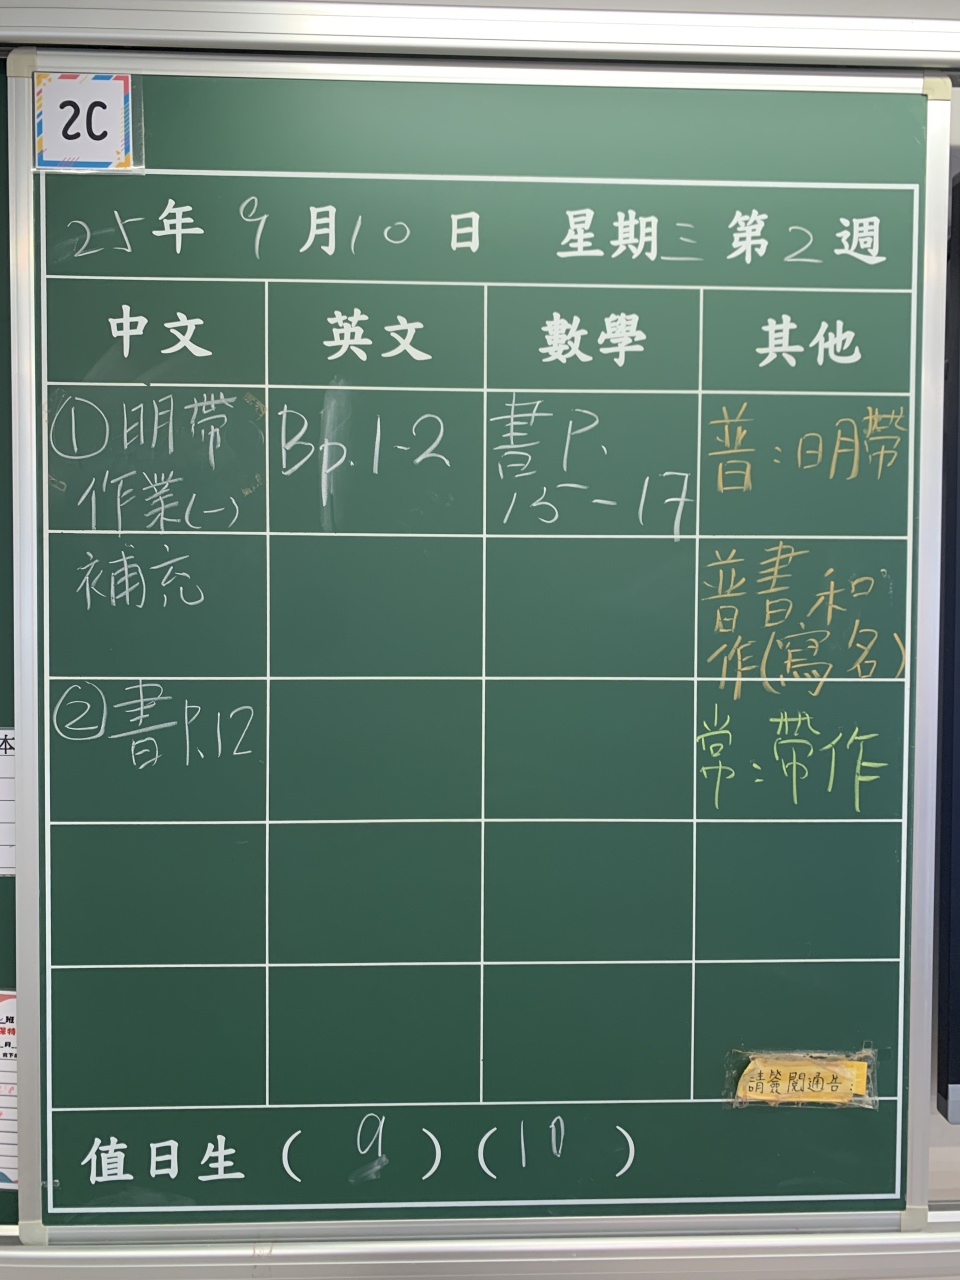 2C
25年 9月10日 星期三 第2週
中文 英文 數學 其他
①明帶
作業(一)
補充
②書P.12
Bp.1-2
書P.
15-17
普:明帶
普書和
作(寫名)
常:帶作
請簽閱通告:
值日生 ( 9 ) ( 10 )
本
班
月